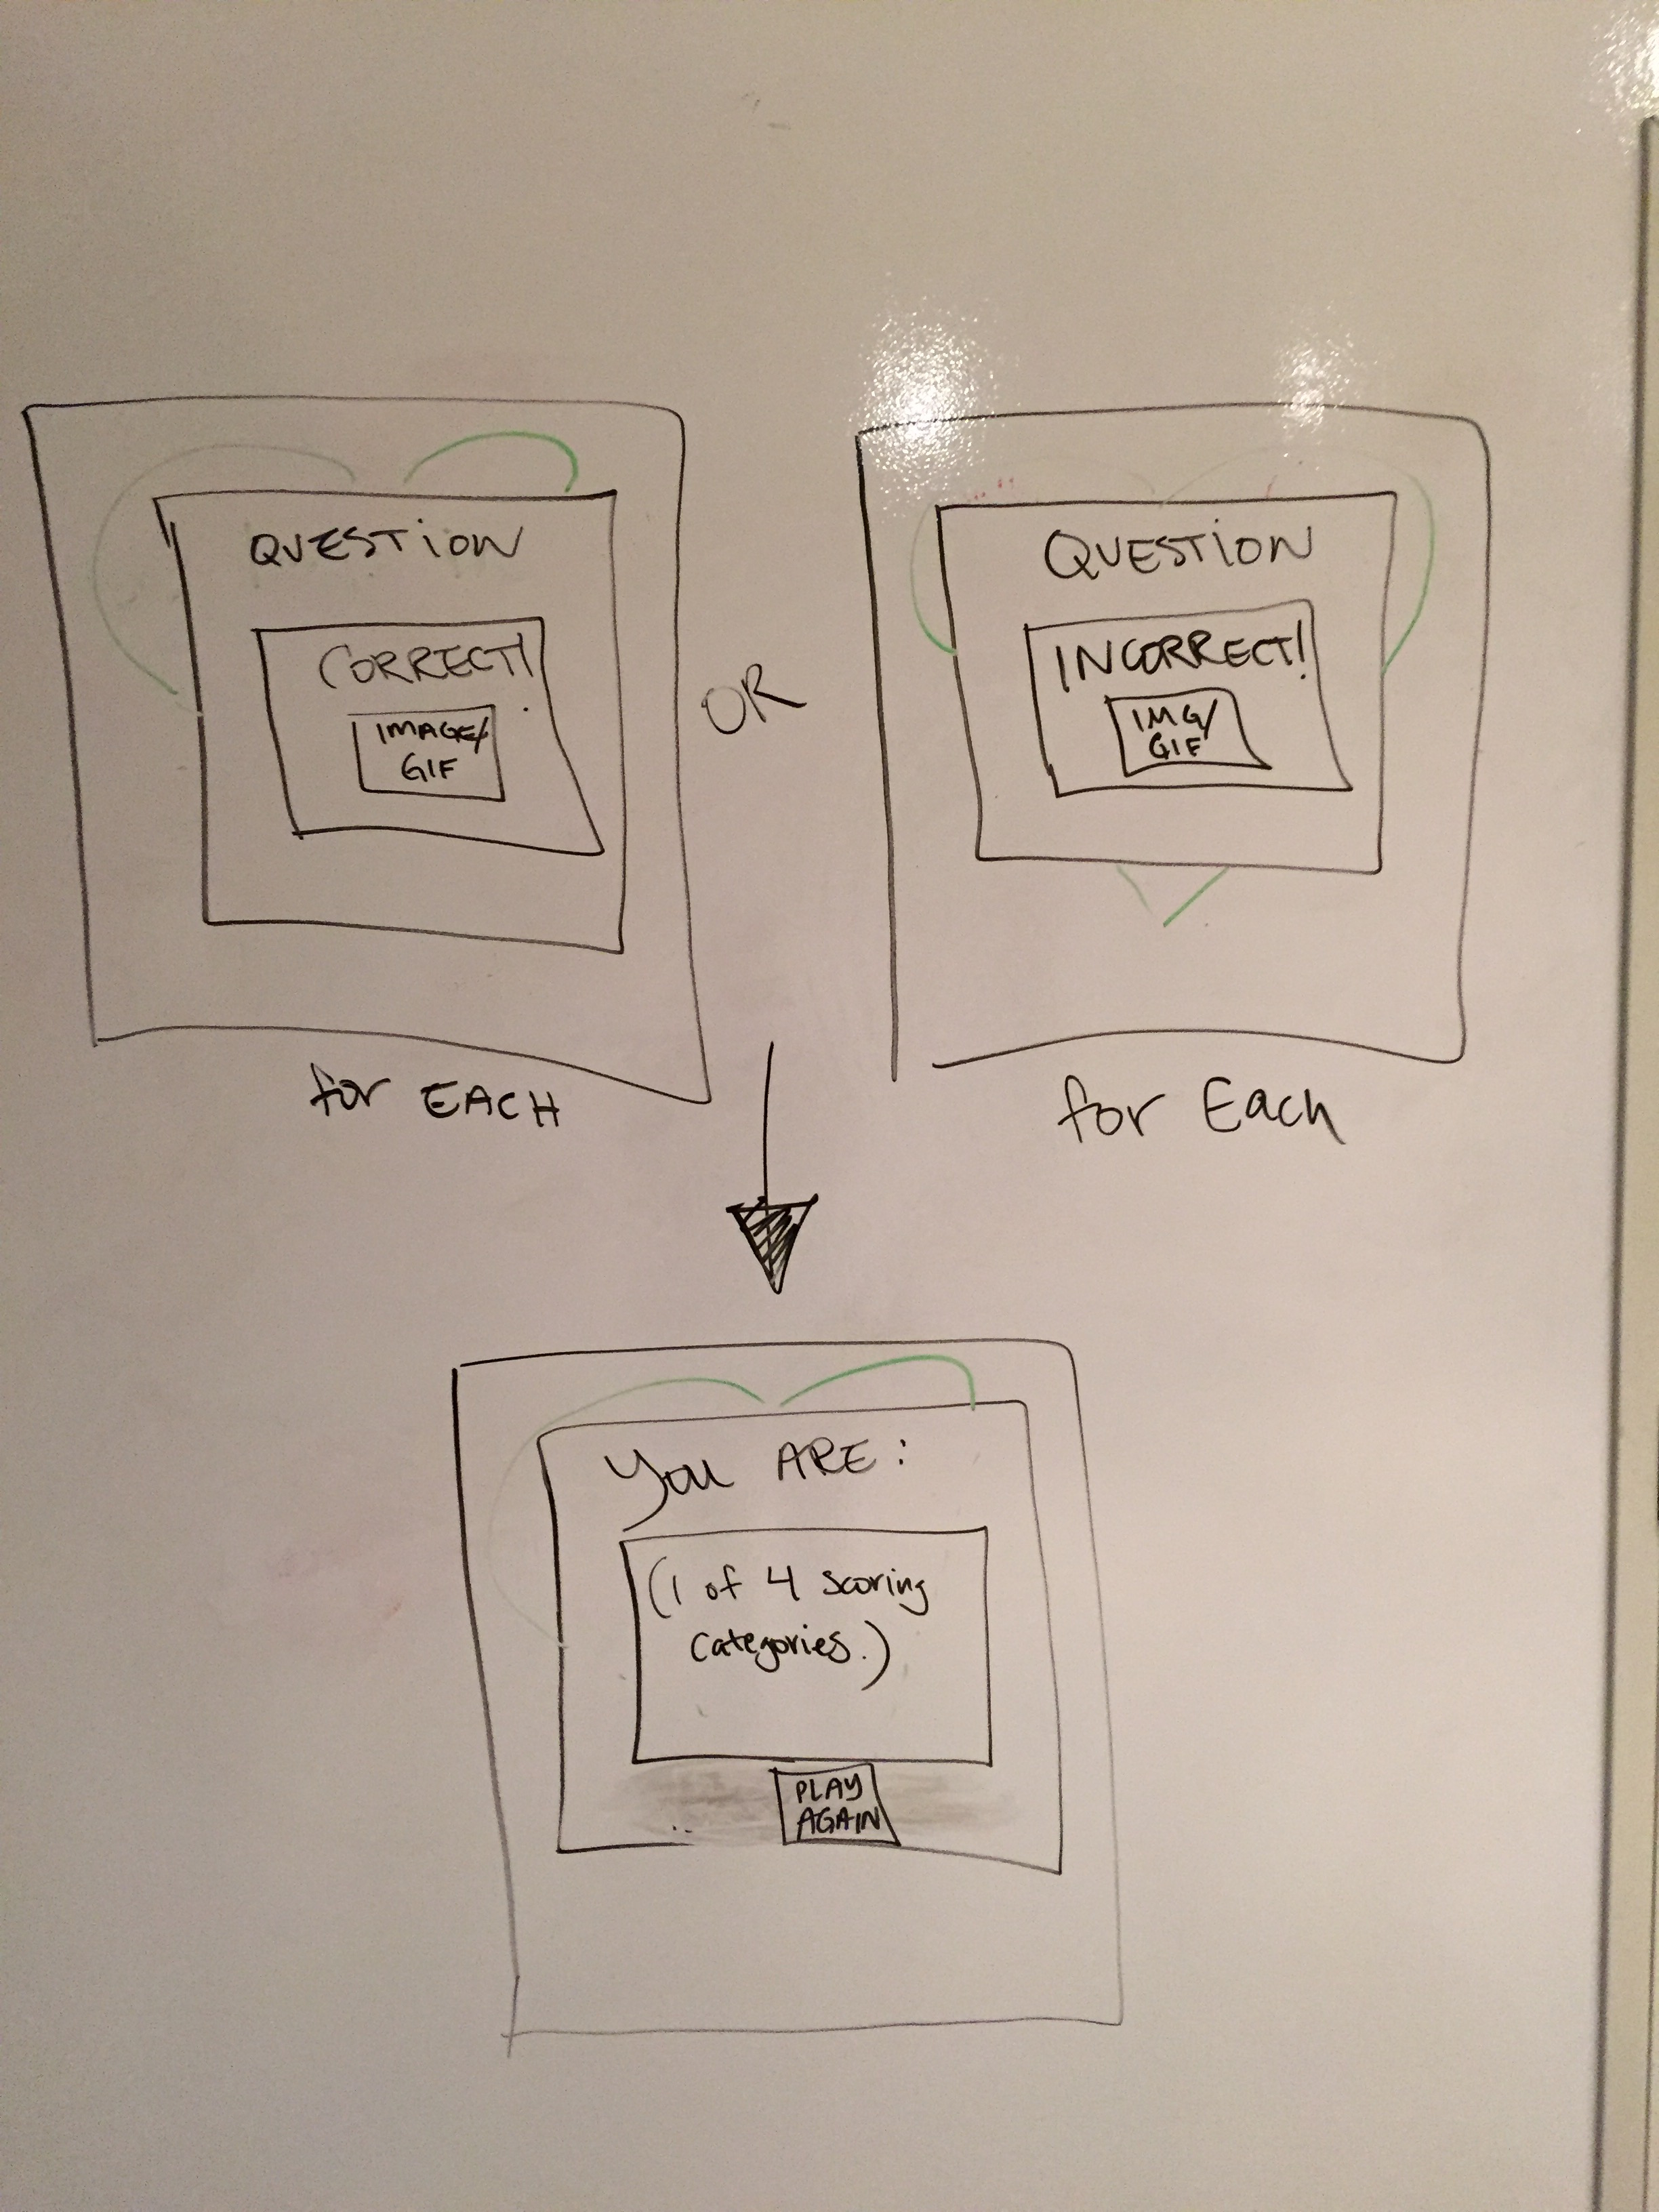 QUESTION
CORRECT!
IMAGE/
GIF
for EACH
OR
QUESTION
INCORRECT!
IMG/
GIF
for Each
You ARE:
(1 of 4 scoring
categories.)
PLAY
AGAIN